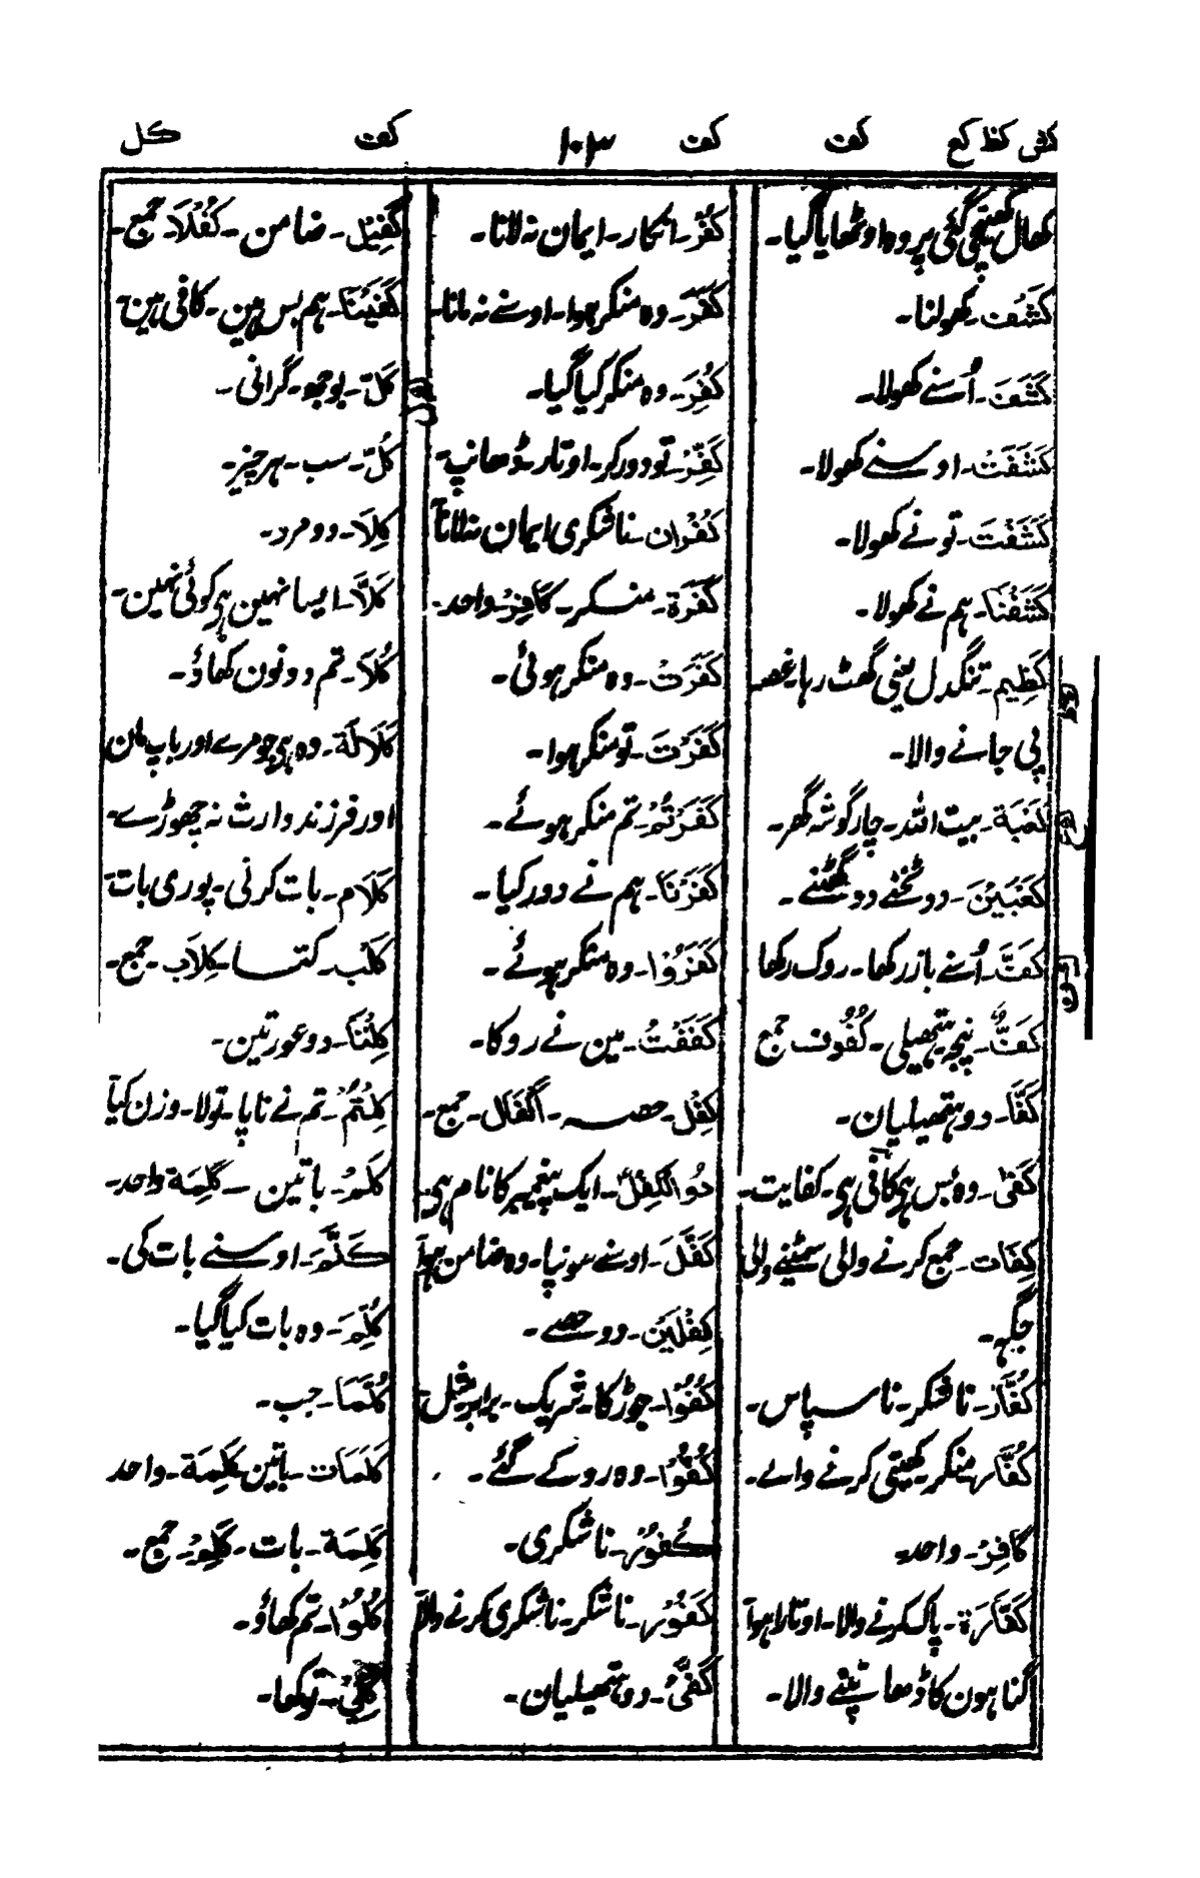 کش کظ کع
کف
کف
۱۰۳
کف
کل
کھال کھینچی گئی پر وہ اوٹھایا گیا۔
کَشْف۔ کھولنا۔
کَشَفَ۔ اُسنے کھولا۔
کَشَفَتْ۔ اوسنے کھولا۔
کَشَفْتَ۔ تونے کھولا۔
کَشَفْنَا۔ ہم نے کھولا۔
کَظِیم۔ تنگدل یعنی گھٹ رہا۔ غصہ
پی جانے والا۔
کَعْبَة۔ بیت اللہ۔ چار گوشہ گھر۔
کَعْبَیْنَ۔ دو ٹخنے دو گھٹنے۔
کَفَّ۔ اُسنے باز رکھا۔ روک رکھا
کَفٌّ۔ پنجہ ہتھیلی۔ کُفُوف جمع
کَفَّا۔ دو ہتھیلیان۔
کَفٰی۔ وہ بس ہی کافی ہی۔ کفایت۔
کِفَات۔ جمع کرنے والی سمٹنے والی
جگہ۔
کُفَّار۔ ناشکر۔ ناسپاس۔
کُفَّار۔ منکر۔ کھیتی کرنے والے۔
کَافِرُ۔ واحد۔
کَفَّارَة۔ پاک کرنے والا۔ اوتارا ہوا
گناہون کا ڈھانپنے والا۔
کُفْر۔ انکار۔ ایمان نہ لانا۔
کَفَرَ۔ وہ منکر ہوا۔ اوسنے نہ مانا۔
کُفِرَ۔ وہ منکر کیا گیا۔
کَفِّرْ۔ تو دور کر۔ اوتار۔ ڈھانپ۔
کُفْران۔ ناشکری ایمان نہ لانا
کَفَرَة۔ منکر۔ کَافِرُ۔ واحد۔
کَفَرَتْ۔ وہ منکر ہوئی۔
کَفَرْتَ۔ تو منکر ہوا۔
کَفَرْتُمْ۔ تم منکر ہوئے۔
کَفَّرْنَا۔ ہم نے دور کیا۔
کَفَرُوْا۔ وہ منکر ہوئے۔
کَفَفْتُ۔ مین نے روکا۔
کِفْل۔ حصہ۔ اَکْفَال۔ جمع۔
ذُوالْکِفْل۔ ایک پیغمبر کا نام ہی۔
کَفَّلَ۔ اوسنے سونپا۔ وہ ضامن ہوا
کِفْلَیْن۔ دو حصے۔
کُفُوًا۔ جوڑ کا۔ شریک۔ برابر مثل۔
کُفُّوْا۔ وہ روکے گئے۔
کُفُوْر۔ ناشکری۔
کَفُوْر۔ ناشکر۔ ناشکری کرنے والا
کَفَّیْ۔ دو ہتھیلیان۔
کَفِیْل۔ ضامن۔ کُفُلَا۔ جمع۔
کَفَیْنَا۔ ہم بس ہین۔ کافی ہین۔
کَلّ۔ بوجھ۔ گرانی۔
کُلّ۔ سب۔ ہر چیز۔
کِلَا۔ دو مرد۔
کَلَّا۔ ایسا نہین ہی کوئی نہین۔
کُلَا۔ تم دونون کھاؤ۔
کَلَالَة۔ وہ ہی جو مرے اور باپ مان
اور فرزند وارث نہ چھوڑے۔
کَلَام۔ بات کرنی۔ پوری بات
کَلْب۔ کتا۔ کِلَاب۔ جمع۔
کِلْتَا۔ دو عورتین۔
کِلْتُمْ۔ تم نے ناپا۔ تولا۔ وزن کیا
کَلِمُ۔ باتین۔ کَلِمَة واحد۔
کَلَّمَ۔ اوسنے بات کی۔
کُلِّمَ۔ وہ بات کیا گیا۔
کُلَّمَا۔ جب۔
کَلِمَات۔ باتین کَلِمَة۔ واحد
کَلِمَة۔ بات۔ کَلِمُ۔ جمع۔
کُلُوْا۔ تم کھاؤ۔
کُلِیْ۔ تو کھا۔